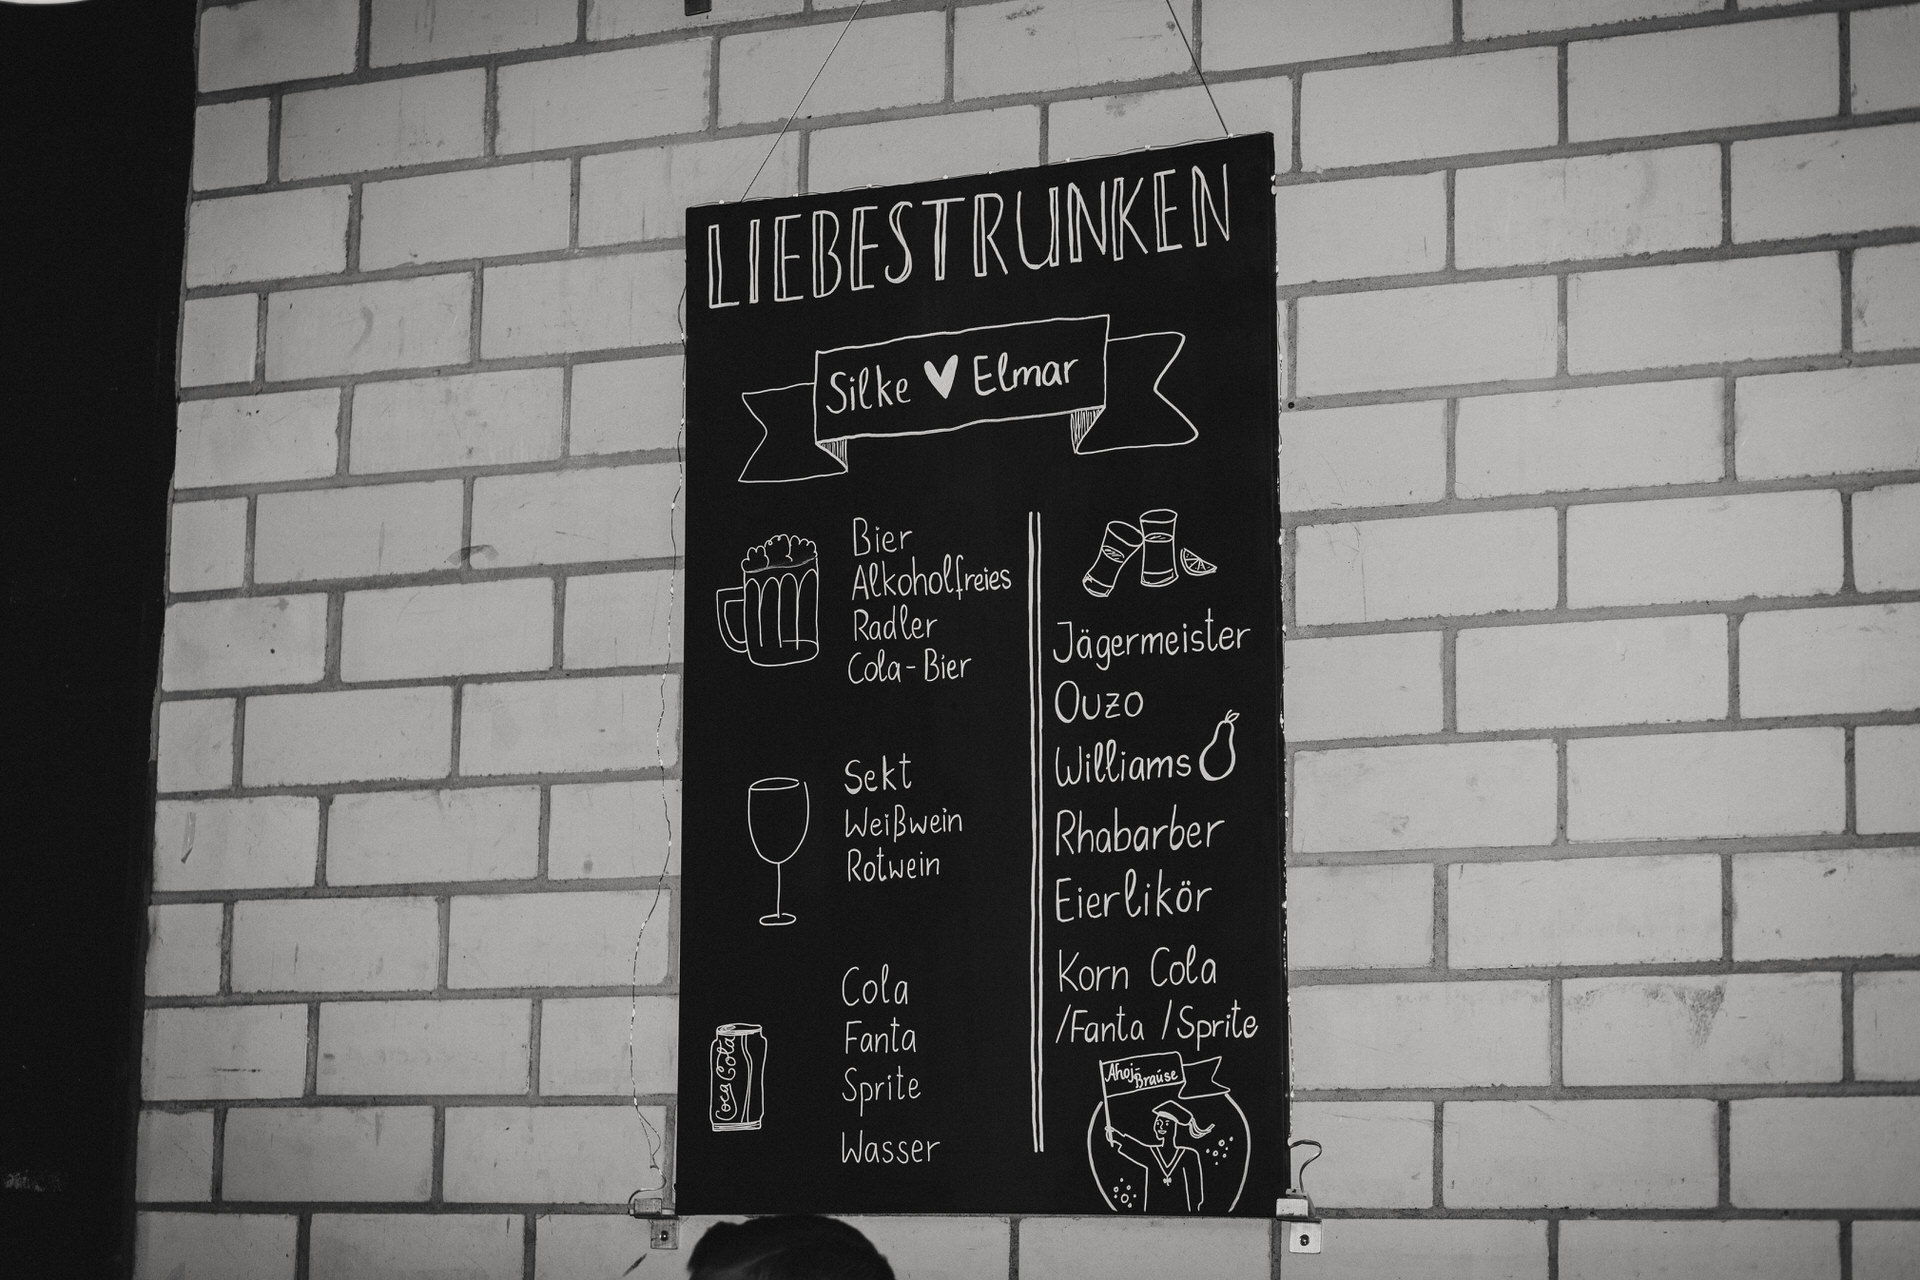 LIEBESTRUNKEN
Silke ♥ Elmar
Bier
Alkoholfreies
Radler
Cola-Bier
Sekt
Weißwein
Rotwein
Coca Cola
Cola
Fanta
Sprite
Wasser
Jägermeister
Ouzo
Williams
Rhabarber
Eierlikör
Korn Cola
/Fanta /Sprite
Ahoj-
Brause